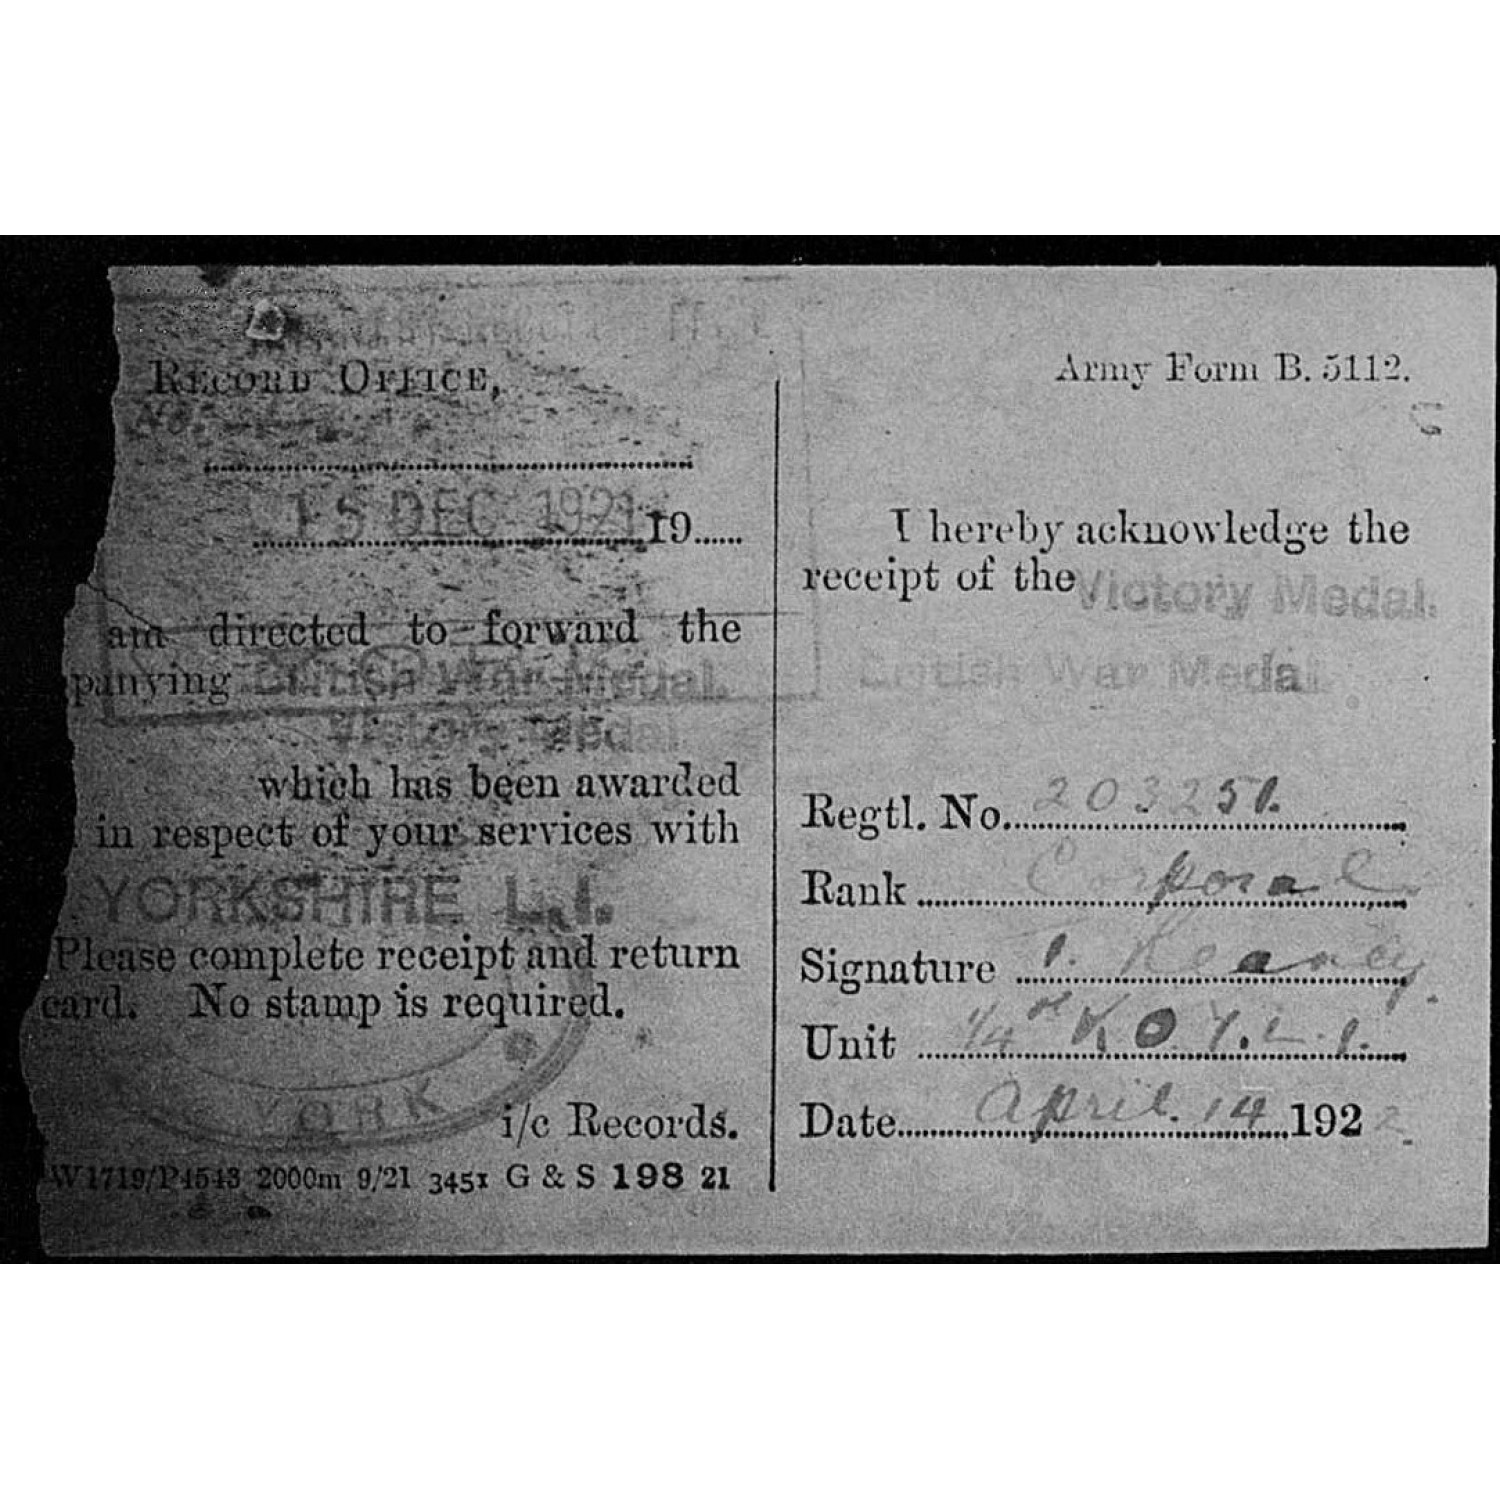 RECORD OFFICE,
No.
15 DEC 1921 19......
am directed to forward the
panying British War Medal.
Victory Medal
which has been awarded
in respect of your services with
YORKSHIRE L.I.
Please complete receipt and return
card. No stamp is required.
YORK
i/c Records.
W1719/P4543 2000m 9/21 3451 G & S 198 21
Army Form B. 5112.
I hereby acknowledge the
receipt of the Victory Medal.
British War Medal.
Regtl. No. 203251.
Rank Corporal
Signature Keaney.
Unit 1/4th K.O.Y.L.I.
Date April. 14 1922.